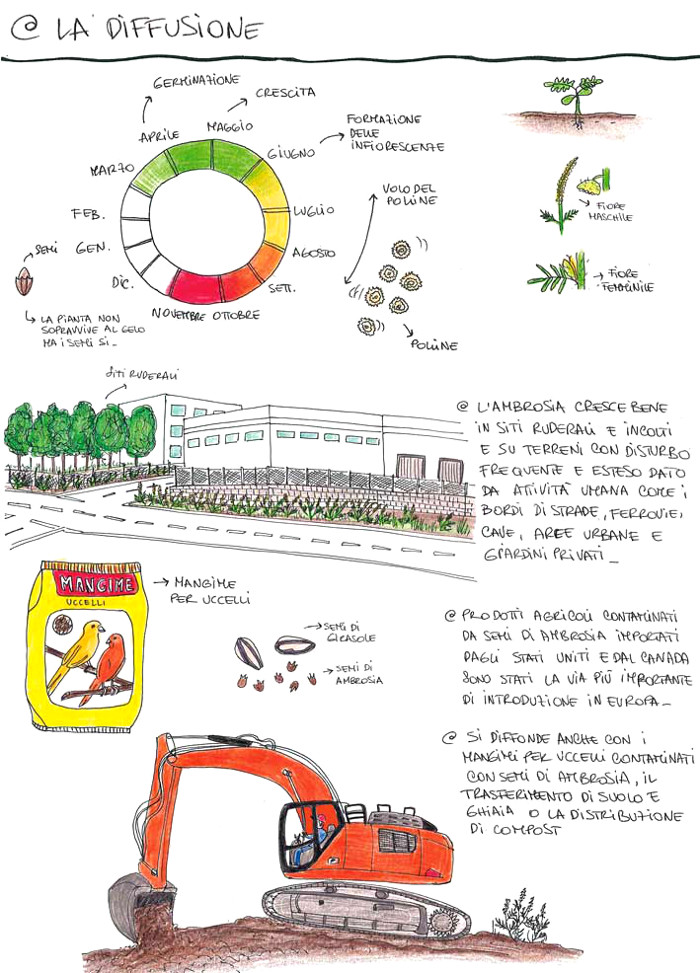 @ LA DIFFUSIONE
GERMINAZIONE
CRESCITA
APRILE
MAGGIO
FORMAZIONE
DELLE
INFIORESCENZE
MARZO
GIUGNO
VOLO DEL
POLLINE
FEB.
LUGLIO
FIORE
MASCHILE
SEMI
GEN.
AGOSTO
DIC.
SETT.
FIORE
FEMMINILE
NOVEMBRE OTTOBRE
LA PIANTA NON
SOPRAVVIVE AL GELO
MA I SEMI SI_
POLLINE
SITI RUDERALI
@ L'AMBROSIA CRESCE BENE
IN SITI RUDERALI E INCOLTI
E SU TERRENI CON DISTURBO
FREQUENTE E ESTESO DATO
DA ATTIVITÀ UMANA COME I
BORDI DI STRADE, FERROVIE,
CAVE, AREE URBANE E
GIARDINI PRIVATI_
MANGIME
UCCELLI
MANGIME
PER UCCELLI
SEMI DI
GIRASOLE
SEMI DI
AMBROSIA
@ PRODOTTI AGRICOLI CONTAMINATI
DA SEMI DI AMBROSIA IMPORTATI
DAGLI STATI UNITI E DAL CANADA
SONO STATI LA VIA PIÙ IMPORTANTE
DI INTRODUZIONE IN EUROPA_
@ SI DIFFONDE ANCHE CON I
MANGIMI PER UCCELLI CONTAMINATI
CON SEMI DI AMBROSIA, IL
TRASFERIMENTO DI SUOLO E
GHIAIA O LA DISTRIBUZIONE
DI COMPOST